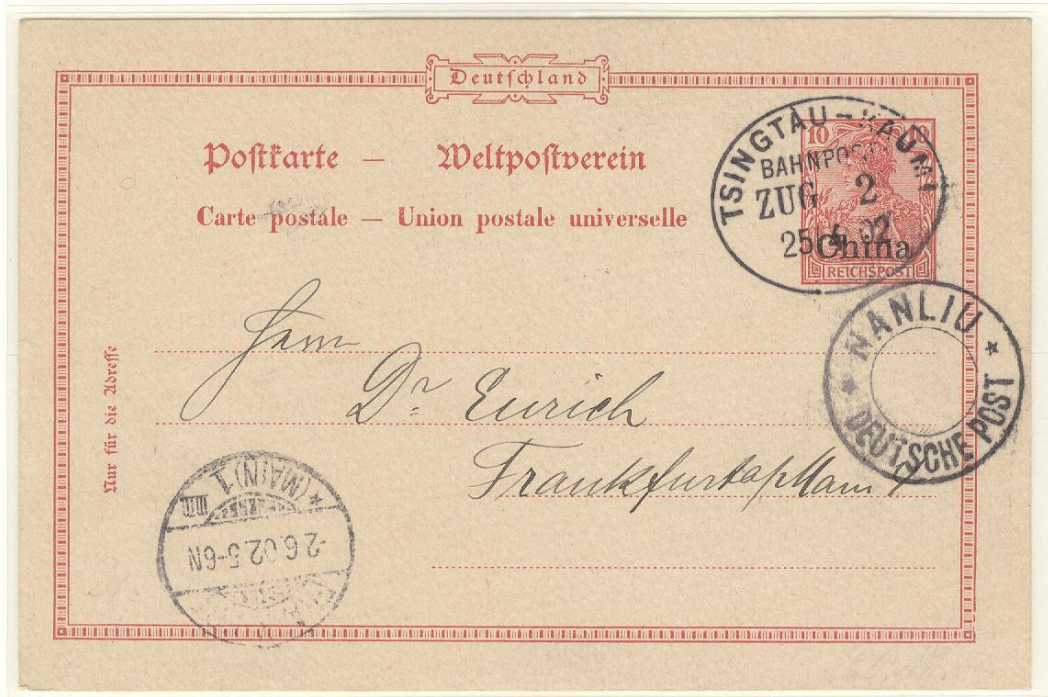 Deutschland
Postkarte — Weltpostverein
Carte postale — Union postale universelle
10 10
China
REICHSPOST
TSINGTAU - KAUMI
BAHNPOST
ZUG 2
25 4 02
NANLIU
* DEUTSCHE POST *
Nur für die Adresse
Herrn
Dr. Eurich
Frankfurt a/Main
* (MAIN) 1
-2 6 02 5-6N